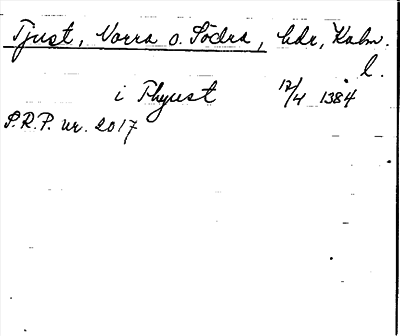 Tjust, Norra o. Södra, hdr, Kalm.
l.
i Thyust 12/4 1384
S.R.P. nr. 2017